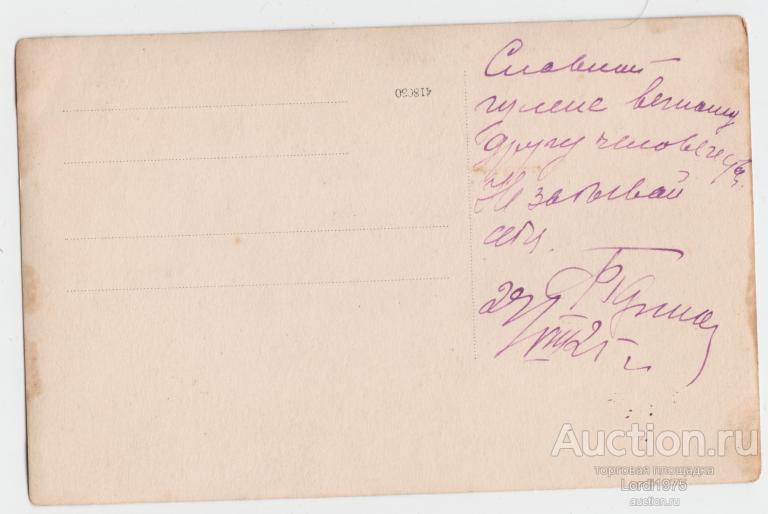 418030
Славной
гулене вечному
другу человечества.
Не забывай
29/VIII 25 г.
Auction.ru
торговая площадка
Lordi1975
auction.ru